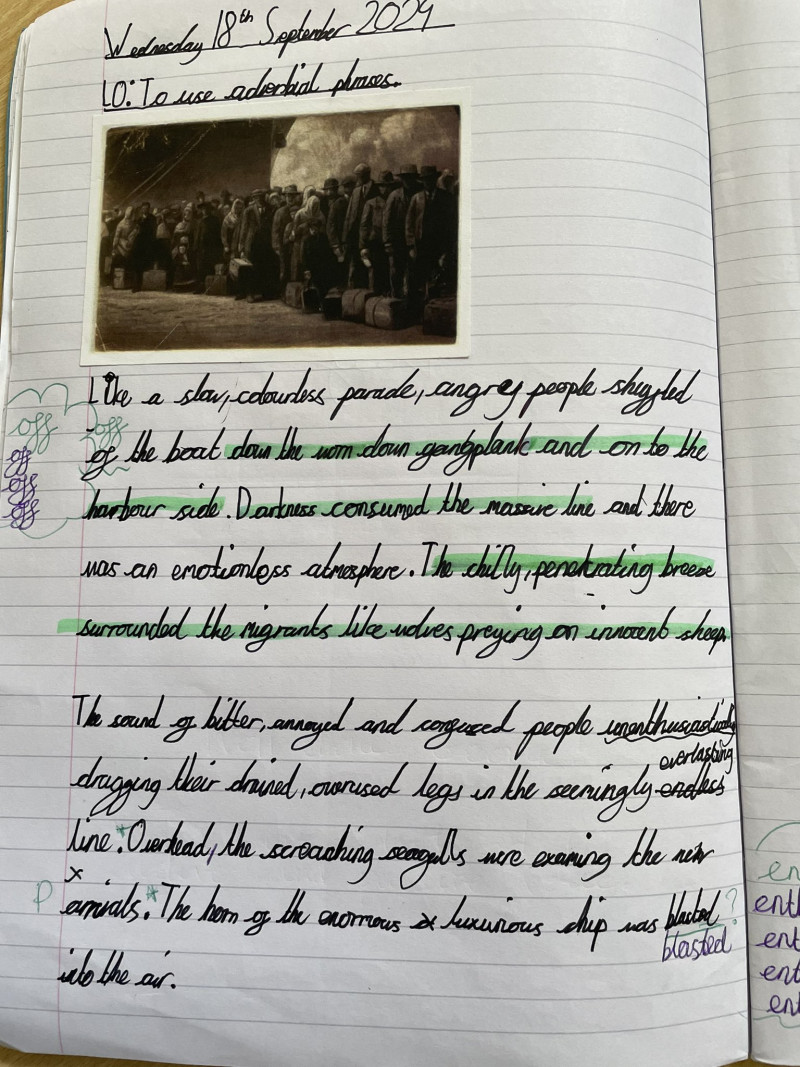 Wednesday 18th September 2024
LO: To use adverbial phrases.
Like a slow, colourless parade, angry people shuffled
off
off
of the boat down the worn down gangplank and on to the
off
off
off
harbour side. Darkness consumed the massive line and there
was an emotionless atmosphere. The chilly, penetrating breeze
surrounded the migrants like wolves preying on innocent sheep.
The sound of bitter, annoyed and confused people unenthusiastically
everlasting
dragging their drained, overused legs in the seemingly endless
line.*Overhead, the screaching seagulls were examing the new
x
P arrivals.*The horn of the enormous luxurious ship was blasted ?
blasted
into the air.
en
enth
ent
ent
ent